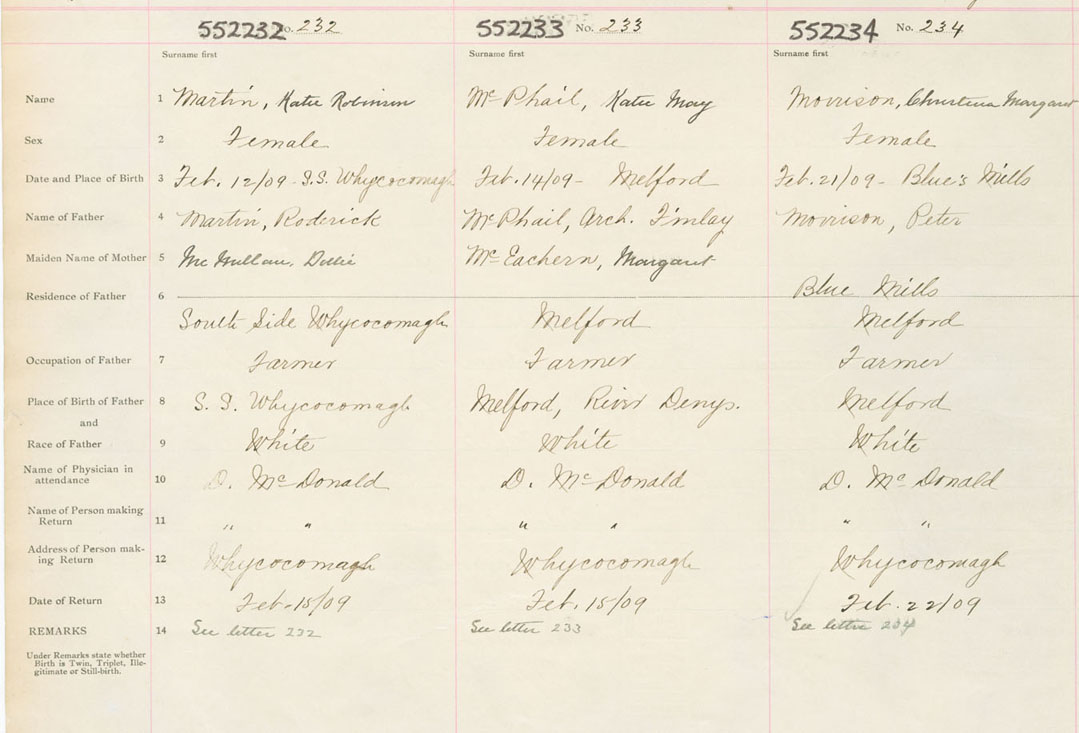 552232 No. 232 552233 No. 233 552234 No. 234
Surname first Surname first Surname first
Name 1 Martin, Katie Robinson Mc Phail, Katie May Morrison, Christina Margaret
Sex 2 Female Female Female
Date and Place of Birth 3 Feb. 12/09 - S.S. Whycocomagh Feb. 14/09 - Melford Feb. 21/09 - Blue's Mills
Name of Father 4 Martin, Roderick McPhail, Arch. Finlay Morrison, Peter
Maiden Name of Mother 5 Mc Millan, Dollie McEachern, Margaret
Blue Mills
Residence of Father 6
South Side Whycocomagh Melford Melford
Occupation of Father 7 Farmer Farmer Farmer
Place of Birth of Father 8 S. S. Whycocomagh Melford, River Denys. Melford
and
Race of Father 9 White White White
Name of Physician in
attendance 10 D. McDonald D. McDonald D. McDonald
Name of Person making
Return 11 " " " " " "
Address of Person mak-
ing Return 12 Whycocomagh Whycocomagh Whycocomagh
Date of Return 13 Feb - 15/09 Feb. 15/09 Feb. 22/09
REMARKS 14 See letter 232 See letter 233 See letter 234
Under Remarks state whether
Birth is Twin, Triplet, Ille-
gitimate or Still-birth.